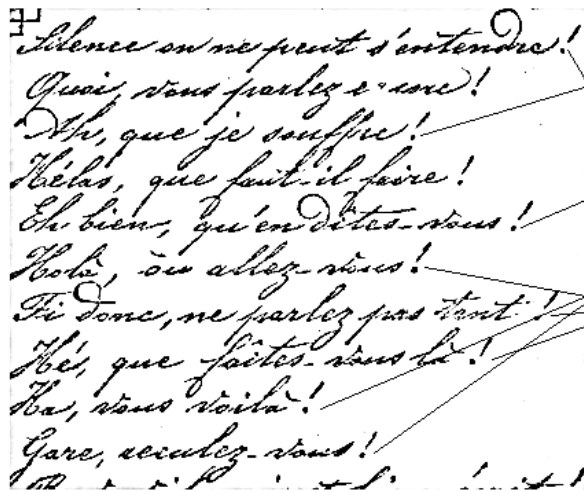 Silence on ne peut s'entendre!
Quoi, vous parlez encore!
Ah, que je souffre!
Hélas, que faut-il faire!
Eh bien, qu'en dites-vous!
Holà, où allez-vous!
Fi donc, ne parlez pas tant!
Hé, que faîtes-vous là!
Ha, vous voilà!
Gare, reculez-vous!